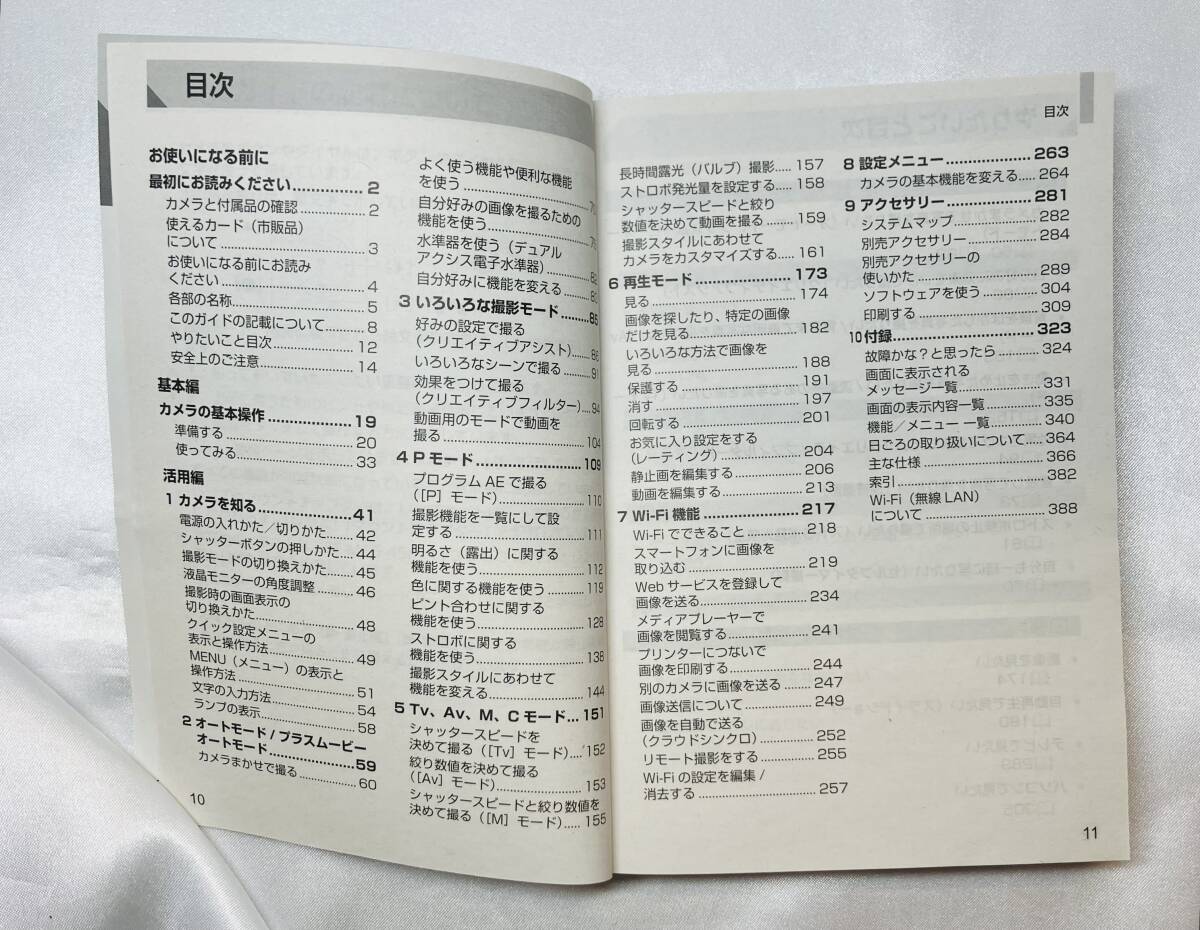 目次
お使いになる前に
最初にお読みください............... 2
カメラと付属品の確認............... 2
使えるカード（市販品）
について............... 3
お使いになる前にお読み
ください............... 4
各部の名称............... 5
このガイドの記載について............... 8
やりたいこと目次............... 12
安全上のご注意............... 14
基本編
カメラの基本操作............... 19
準備する............... 20
使ってみる............... 33
活用編
1 カメラを知る............... 41
電源の入れかた／切りかた............... 42
シャッターボタンの押しかた............... 44
撮影モードの切り換えかた............... 45
液晶モニターの角度調整............... 46
撮影時の画面表示の
切り換えかた............... 48
クイック設定メニューの
表示と操作方法............... 49
MENU（メニュー）の表示と
操作方法............... 51
文字の入力方法............... 54
ランプの表示............... 58
2 オートモード / プラスムービー
オートモード............... 59
カメラまかせで撮る............... 60
10
よく使う機能や便利な機能
を使う...............
自分好みの画像を撮るための
機能を使う...............
水準器を使う（デュアル
アクシス電子水準器）............... 82
自分好みに機能を変える...............
3 いろいろな撮影モード............... 85
好みの設定で撮る
（クリエイティブアシスト）............... 86
いろいろなシーンで撮る............... 91
効果をつけて撮る
（クリエイティブフィルター）............... 94
動画用のモードで動画を
撮る............... 104
4 P モード............... 109
プログラム AE で撮る
（[P] モード）............... 110
撮影機能を一覧にして設
定する............... 111
明るさ（露出）に関する
機能を使う............... 112
色に関する機能を使う............... 119
ピント合わせに関する
機能を使う............... 128
ストロボに関する
機能を使う............... 138
撮影スタイルにあわせて
機能を変える............... 144
5 Tv、Av、M、C モード... 151
シャッタースピードを
決めて撮る（[Tv] モード）............... 152
絞り数値を決めて撮る
（[Av] モード）............... 153
シャッタースピードと絞り数値を
決めて撮る（[M] モード）..... 155
目次
長時間露光（バルブ）撮影..... 157
ストロボ発光量を設定する..... 158
シャッタースピードと絞り
数値を決めて動画を撮る............... 159
撮影スタイルにあわせて
カメラをカスタマイズする..... 161
6 再生モード............... 173
見る............... 174
画像を探したり、特定の画像
だけを見る............... 182
いろいろな方法で画像を
見る............... 188
保護する............... 191
消す............... 197
回転する............... 201
お気に入り設定をする
（レーティング）............... 204
静止画を編集する............... 206
動画を編集する............... 213
7 Wi-Fi 機能............... 217
Wi-Fi でできること............... 218
スマートフォンに画像を
取り込む............... 219
Web サービスを登録して
画像を送る............... 234
メディアプレーヤーで
画像を閲覧する............... 241
プリンターにつないで
画像を印刷する............... 244
別のカメラに画像を送る............... 247
画像送信について............... 249
画像を自動で送る
（クラウドシンクロ）............... 252
リモート撮影をする............... 255
Wi-Fi の設定を編集 /
消去する............... 257
8 設定メニュー............... 263
カメラの基本機能を変える..... 264
9 アクセサリー............... 281
システムマップ............... 282
別売アクセサリー............... 284
別売アクセサリーの
使いかた............... 289
ソフトウェアを使う............... 304
印刷する............... 309
10 付録............... 323
故障かな？と思ったら............... 324
画面に表示される
メッセージ一覧............... 331
画面の表示内容一覧............... 335
機能／メニュー 一覧............... 340
日ごろの取り扱いについて..... 364
主な仕様............... 366
索引............... 382
Wi-Fi（無線 LAN）
について............... 388
11